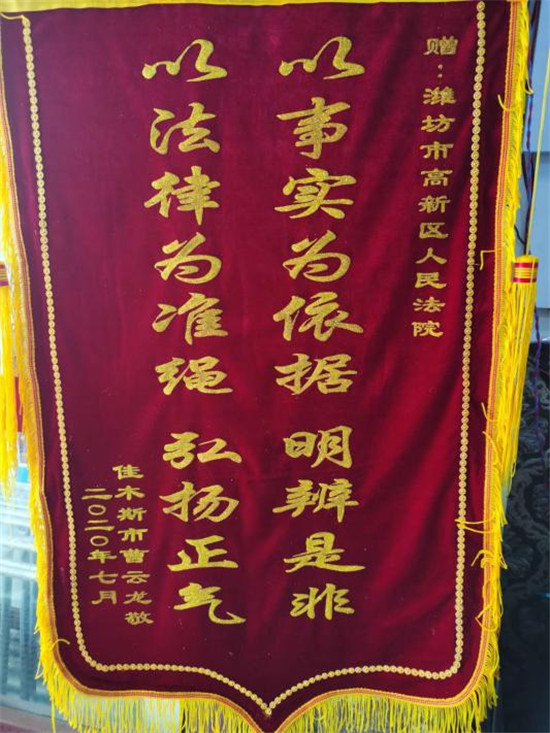 赠：潍坊市高新区人民法院
以事实为依据 明辨是非
以法律为准绳 弘扬正气
佳木斯市曹云龙敬
二〇二〇年七月